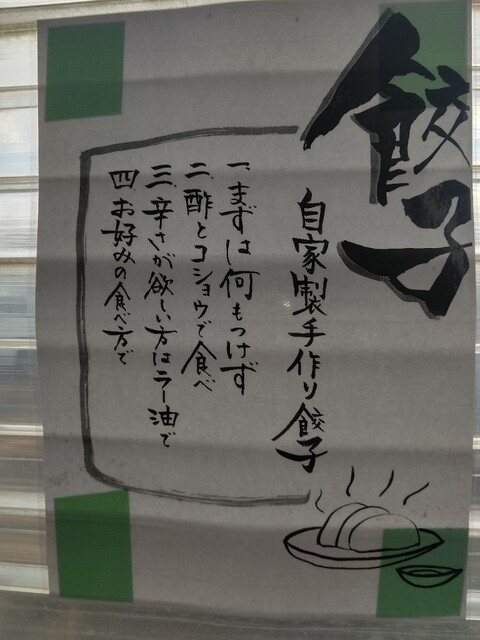 餃子
自家製手作り餃子
一、まずは何もつけず
二、酢とコショウで食べ
三、辛さが欲しい方はラー油で
四、お好みの食べ方で